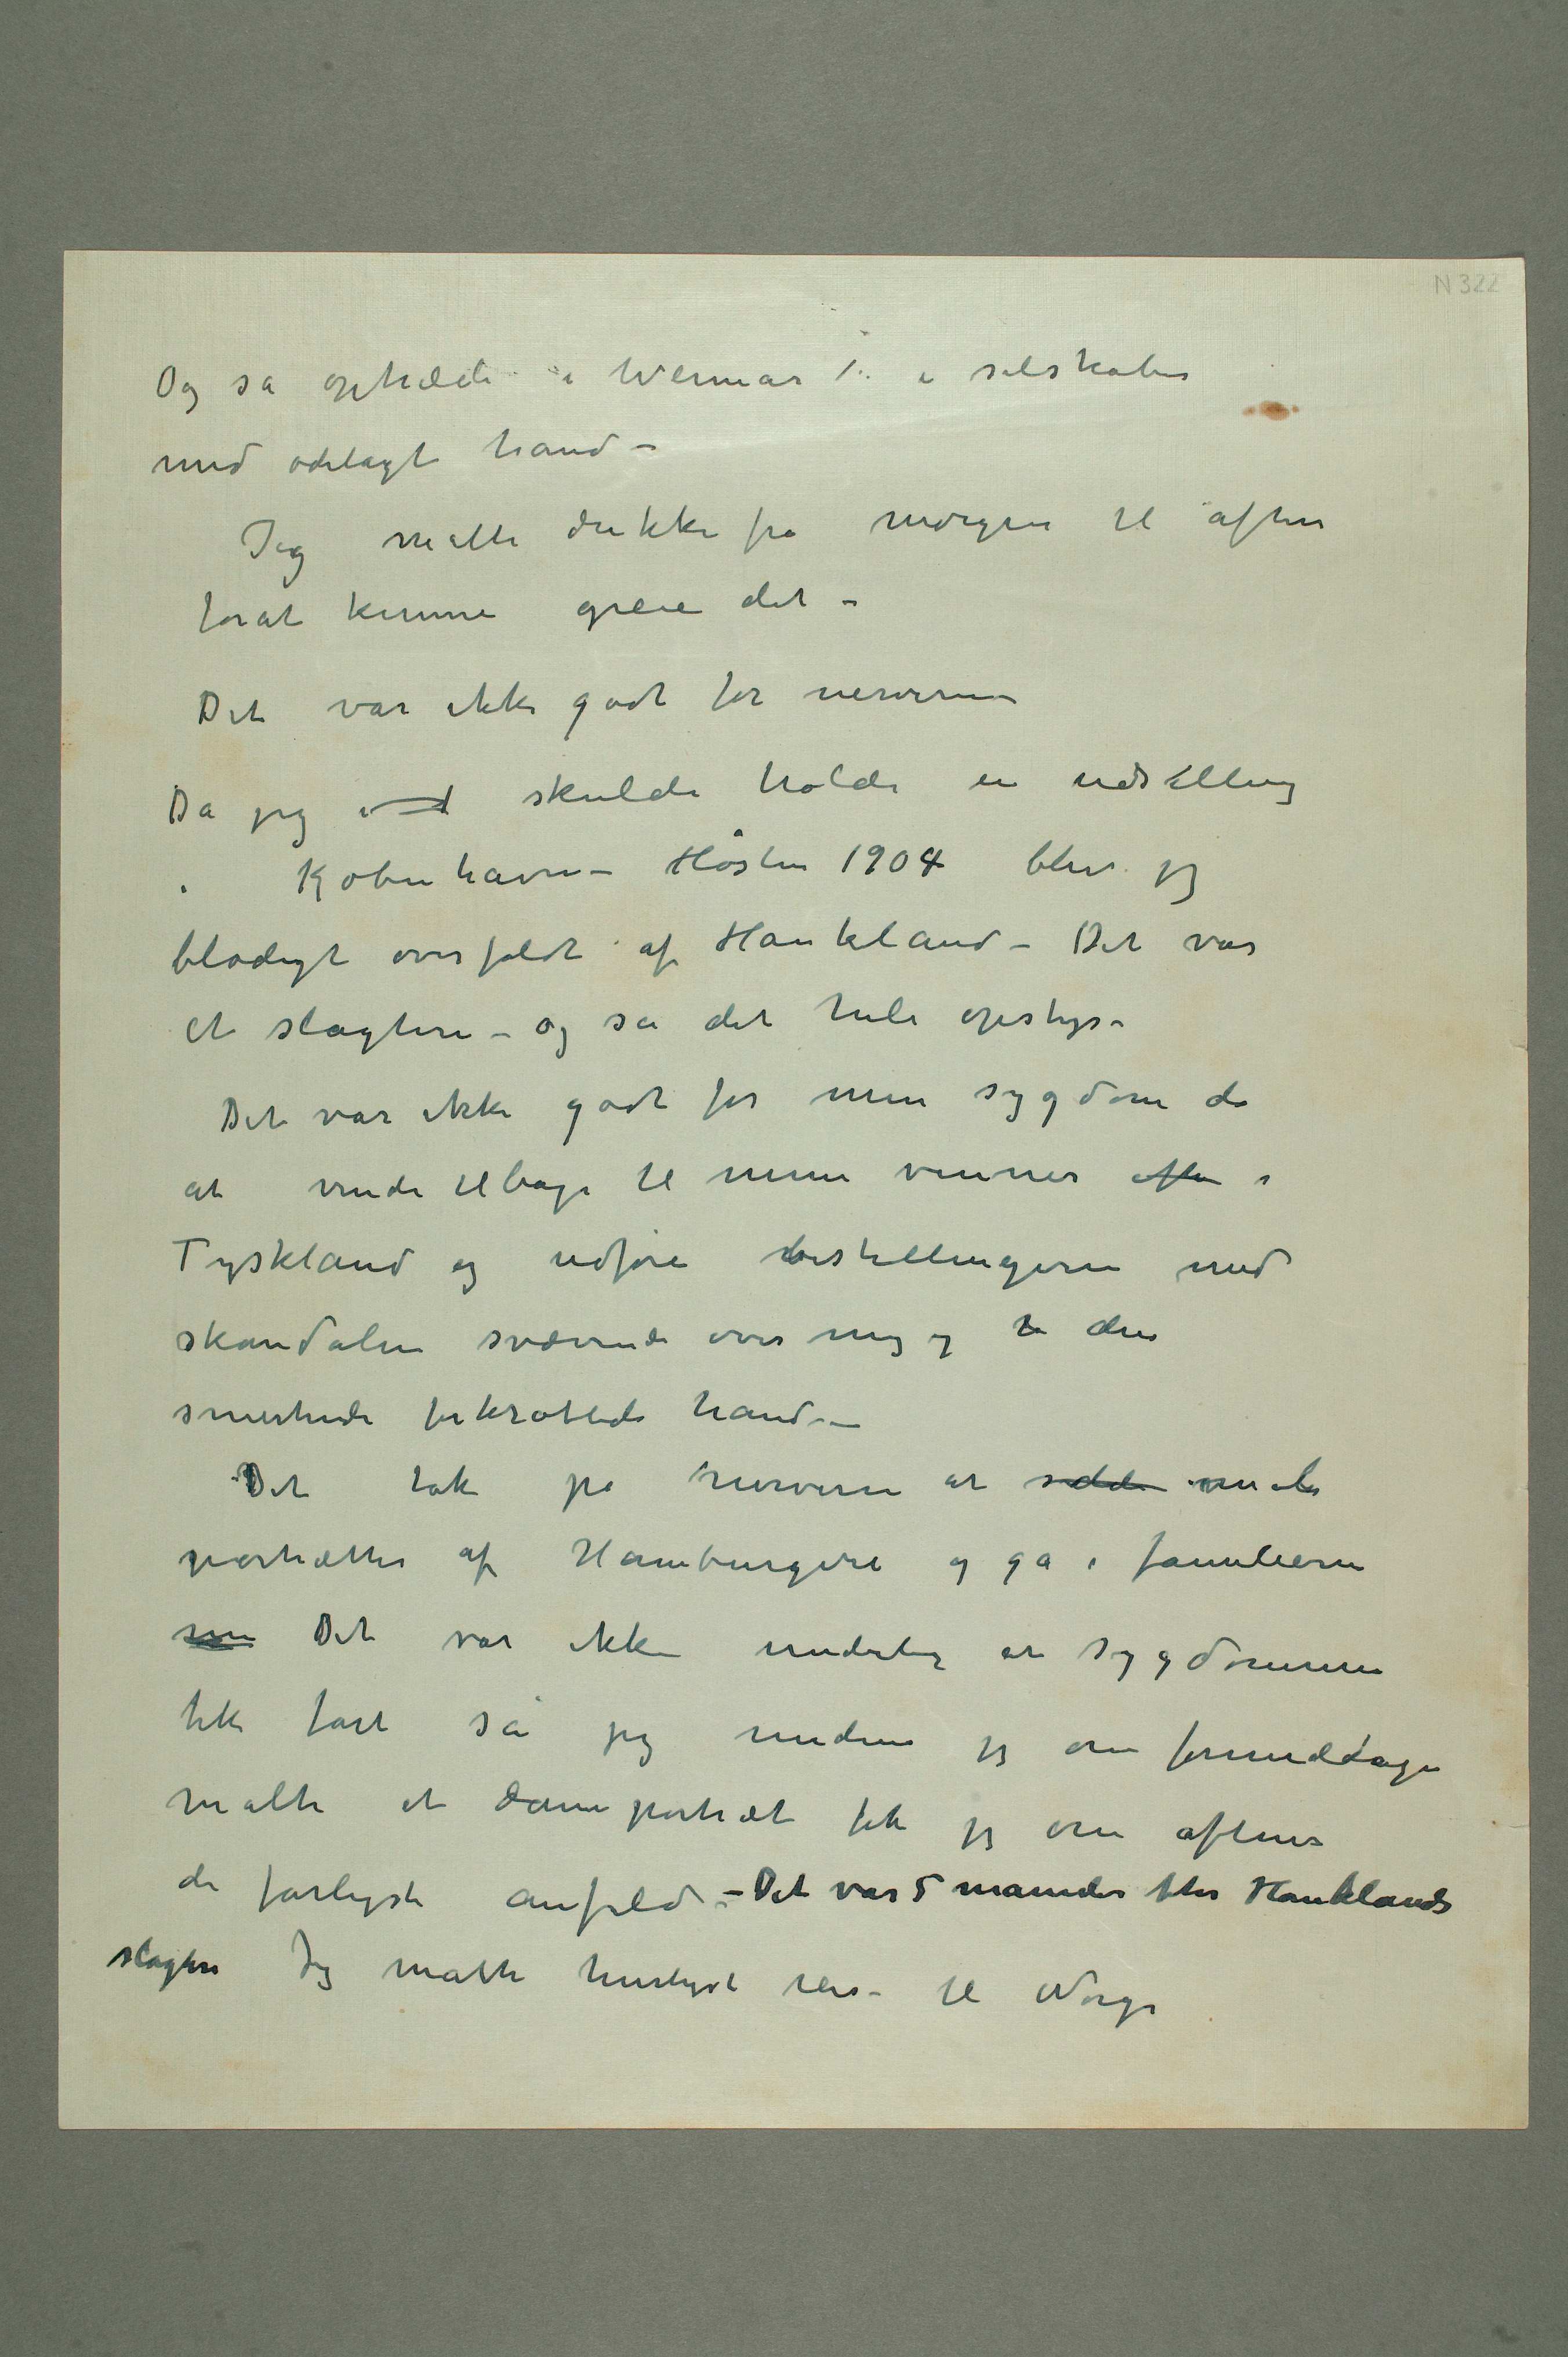 N 322
Og så optræde i Weimar i selskaber
med ødelagt hånd –
Jeg måtte drikke fra morgen til aften
forat kunne greie det –
Det var ikke godt for nerverne
Da jeg skulde holde en udstilling
i København – Høsten 1904 blev jeg
blodigt overfaldt af Haukland – Det var
et slagteri – og så det hele opstyr –
Det var ikke godt for min sygdom da
at vende tilbage til mine venner i
Tyskland og udføre bestillingerne med
skandalen svævende over mig og den
smertende forkrøblede hånd –
Det tok på nerverne at sidde male
portrætter af Hamburgere og gå i familierne
Det var ikke underlig at sygdommen
fik fart så jeg medens jeg om formiddagen
malte et dameportræt fik jeg om aftenen
de farligste anfald – Det var 5 måneder efter Hauklands
slagteri Jeg måtte hurtigst reise til Norge